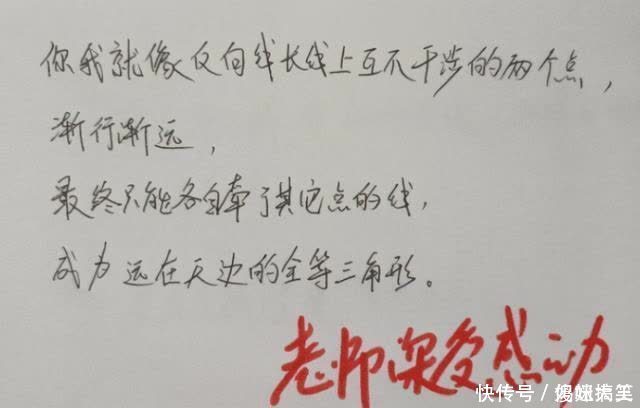 你我就像反向线长线上互不干涉的两个点，
渐行渐远，
最终只能各自牵了其它点的线，
成为远在天边的全等三角形。
老师深受感动
快传号／